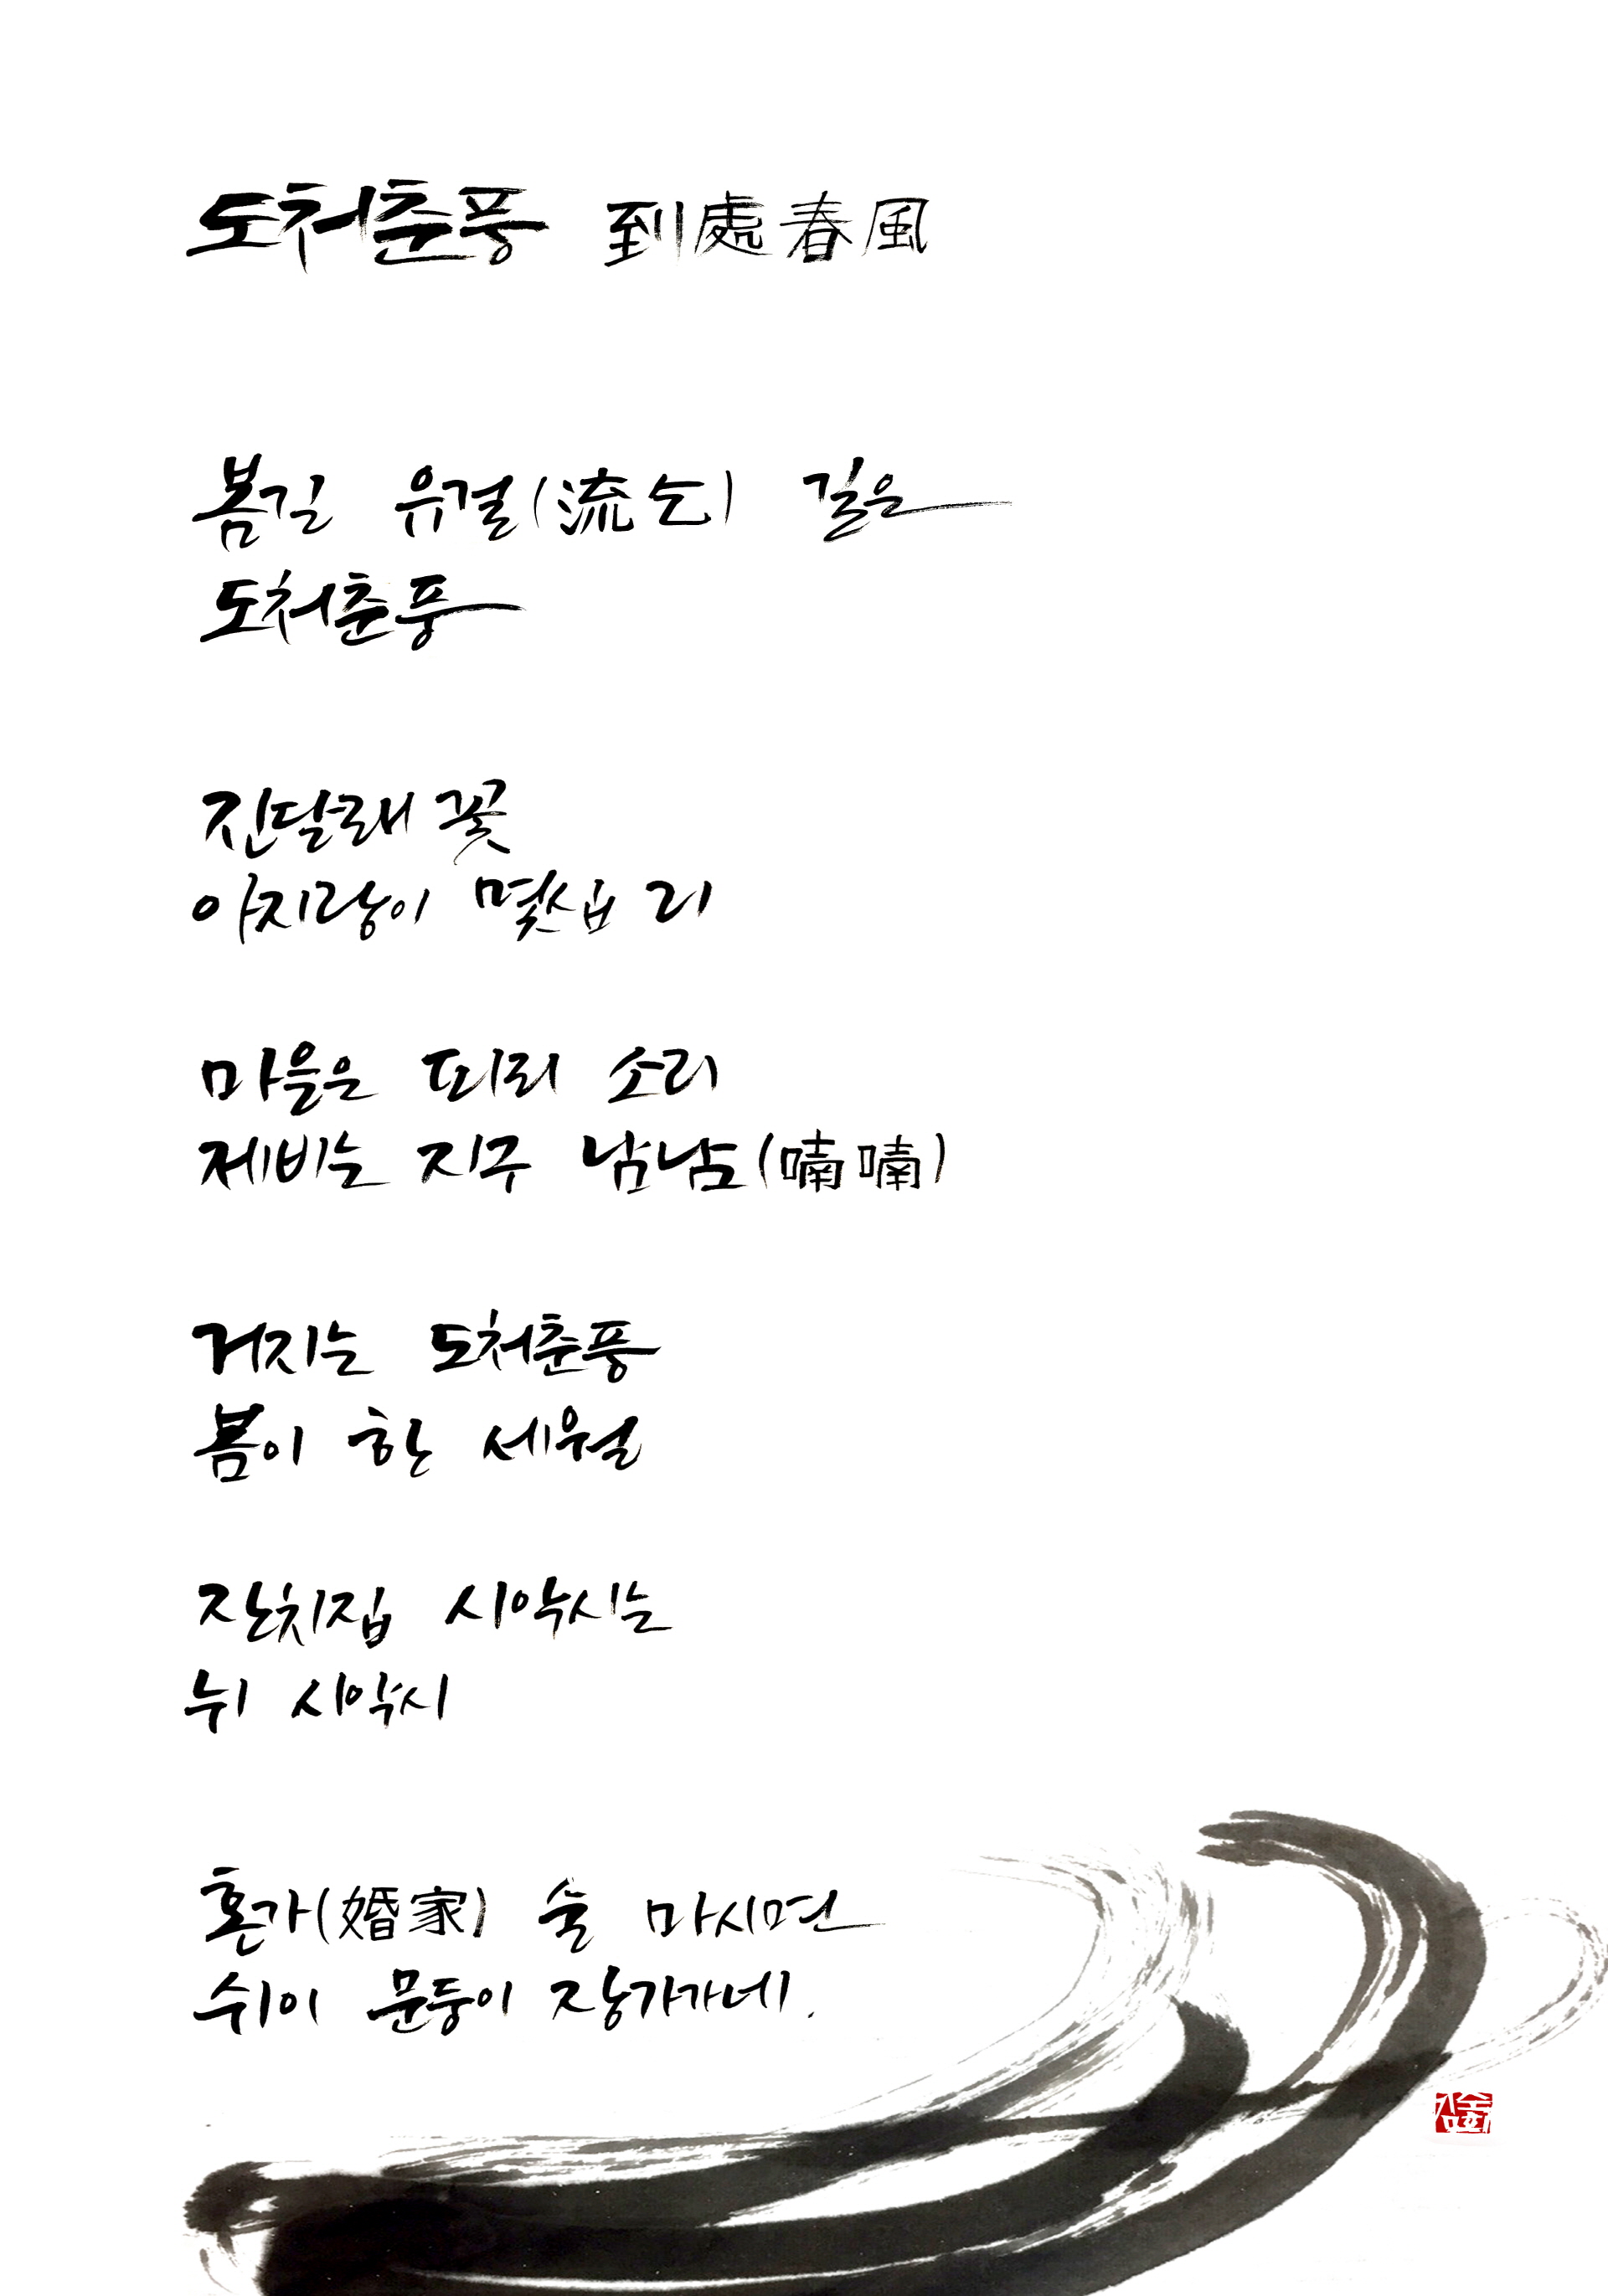 도처춘풍 到處春風
봄길 유걸(流乞) 길은
도처춘풍
진달래 꽃
아지랑이 몇십 리
마을은 피리 소리
제비는 지구 남남(喃喃)
거지는 도처춘풍
봄이 한 세월
잔치집 시악시는
뉘 시악시
혼가(婚家) 술 마시면
쉬이 문둥이 장가가네.